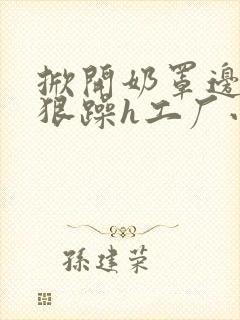 掀開奶罩邊
狠躁h工厂
孫建荣